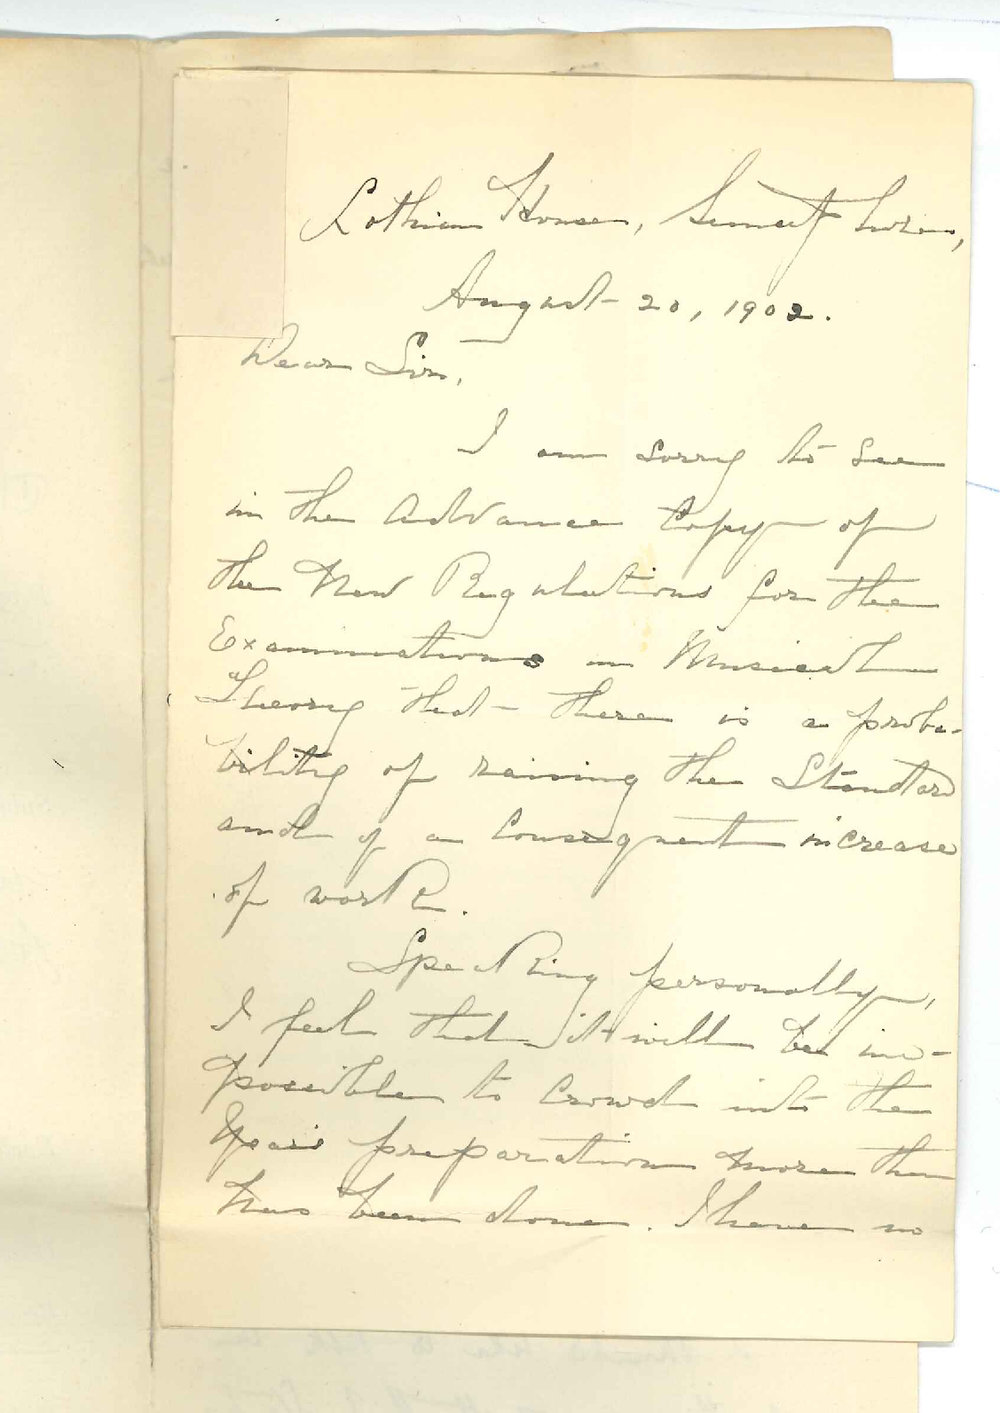 Lothian House,
August 20, 1902.
Dear Sir,
I am sorry to see
in the Advance Copy of
the New Regulations for the
Examinations in Musical
Theory that there is a proba-
bility of raising the Standard
and of a Consequent increase
of work.
Speaking personally,
I feel that it will be im-
possible to Crowd into the
Year's preparation more than
has been done. I have no